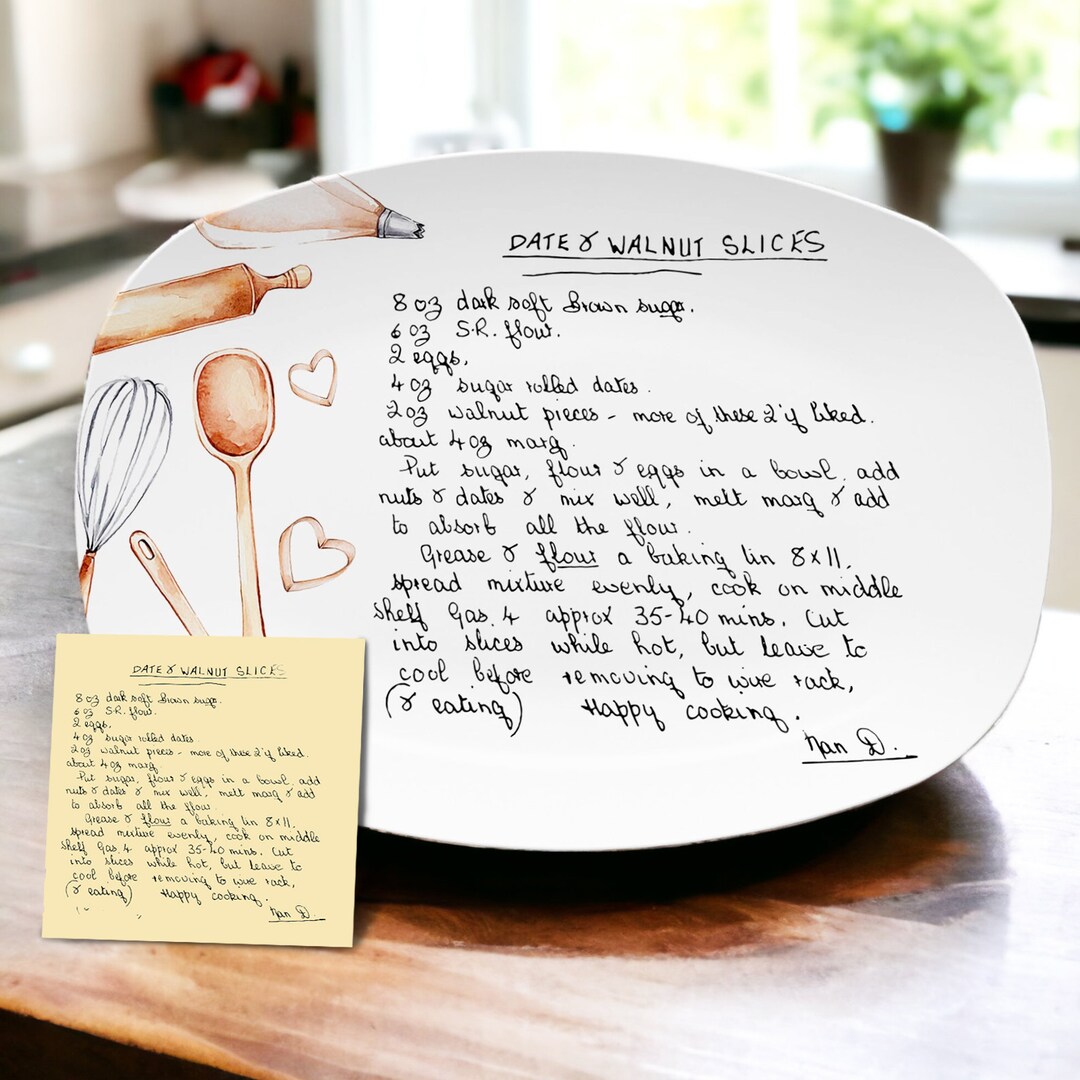 DATE & WALNUT SLICES
8 oz dark soft Brown sugar.
6 oz S.R. flour.
2 eggs.
4 oz sugar rolled dates.
2 oz walnut pieces - more of these 2 if liked.
about 4 oz marg.
Put sugar, flour & eggs in a bowl, add
nuts & dates & mix well, melt marg & add
to absorb all the flour.
Grease & flour a baking tin 8x11,
spread mixture evenly, cook on middle
shelf Gas. 4 approx 35-40 mins. Cut
into slices while hot, but leave to
cool before removing to wire rack,
(& eating) Happy cooking.
Nan D.
DATE & WALNUT SLICES
8 oz dark soft Brown sugar.
6 oz S.R. flour.
2 eggs.
4 oz sugar rolled dates.
2 oz walnut pieces - more of these 2 if liked.
about 4 oz marg.
Put sugar, flour & eggs in a bowl, add
nuts & dates & mix well, melt marg & add
to absorb all the flour.
Grease & flour a baking tin 8x11,
spread mixture evenly, cook on middle
shelf Gas. 4 approx 35-40 mins. Cut
into slices while hot, but leave to
cool before removing to wire rack,
(& eating) Happy cooking.
Nan D.